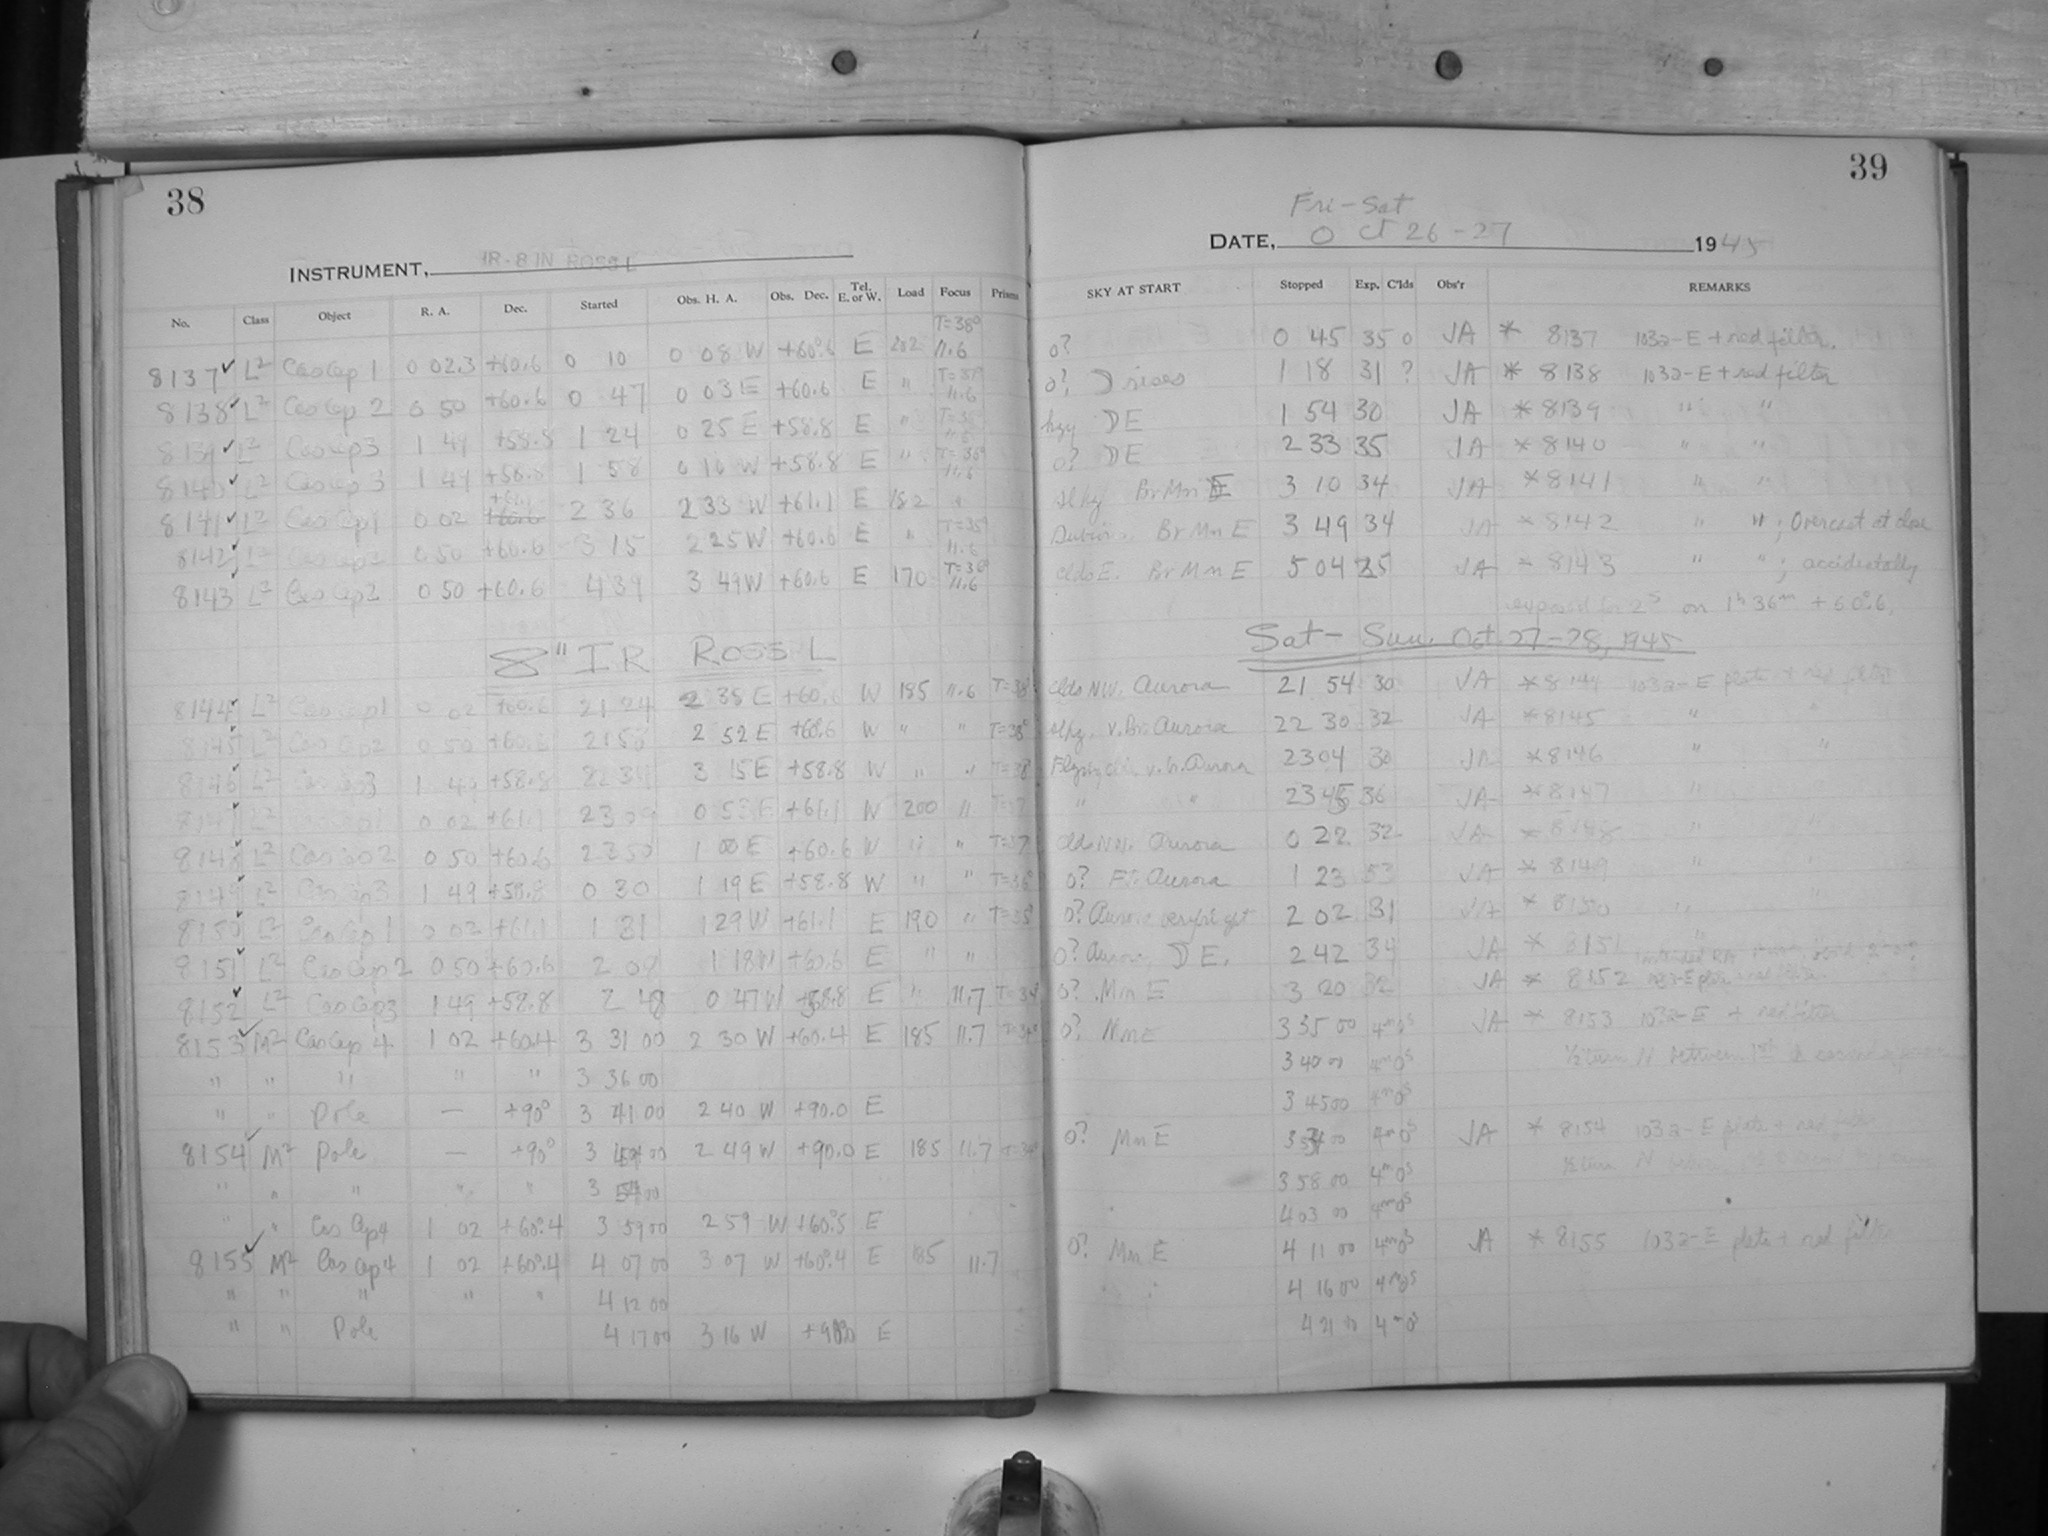 38
INSTRUMENT, IR-8 IN ROSS L
No. Class Object R. A. Dec. Started Obs. H. A. Obs. Dec. Tel. E. or W. Load Focus Prisms
8137 L² CasCep 1 0 02.3 +60.6 0 10 0 08 W +60.6 E 202 T=38° 11.6
8138 L² CasCep 2 0 50 +60.6 0 47 0 03 E +60.6 E " T=37° 11.6
8139 L² CasCep 3 1 49 +58.8 1 24 0 25 E +58.8 E "
8140 L² CasCep 3 1 49 +58.8 1 58 0 10 W +58.8 E " 11.6
8141 L² CasCep 1 0 02 2 36 2 33 W +61.1 E 182 "
8142 L² CasCep 2 0 50 +60.6 3 15 2 25 W +60.6 E " T=35° 11.6
8143 L² CasCep 2 0 50 +60.6 4 39 3 49 W +60.6 E 170 11.6
8" IR ROSS L
8144 L² CasCep 1 0 02 +60.6 21 24 2 35 E +60.6 W 185 11.6 T=38°
8145 L² CasCep 2 0 50 +60.6 21 58 2 52 E +60.6 W " " T=38°
8146 L² CasCep 3 1 49 +58.8 22 34 3 15 E +58.8 W " " T=38°
8147 L² 0 02 +61.1 23 09 0 53 E +61.1 W 200 " T=37
8148 L² CasCep 2 0 50 +60.6 23 50 1 00 E +60.6 W " " T=37
8149 L² CasCep 3 1 49 +58.8 0 30 1 19 E +58.8 W " "
8150 L² CasCep 1 0 02 +61.1 1 31 1 29 W +61.1 E 190 " T=35°
8151 L² CasCep 2 0 50 +60.6 2 09 1 18 W +60.6 E " "
8152 L² CasCep 3 1 49 +58.8 2 48 0 47 W +58.8 E " 11.7 T=34
8153 M² CasCep 4 1 02 +60.4 3 31 00 2 30 W +60.4 E 185 11.7
" " " " " 3 36 00
" " Pole — +90° 3 41 00 2 40 W +90.0 E
8154 M² Pole — +90° 3 00 2 49 W +90.0 E 185 11.7
" " " " " 3 54 00
" " Cas Cep4 1 02 +60°.4 3 59 00 2 59 W +60°.5 E
8155 M² Cas Cep4 1 02 +60°.4 4 07 00 3 07 W +60°.4 E 185 11.7
" " " " " 4 12 00
" " Pole 4 17 00 3 16 W E
39
Fri-Sat
DATE, Oct 26-27 1945
SKY AT START Stopped Exp. C'lds Obs'r REMARKS
0? 0 45 35 0 JA * 8137 103a-E + red filter.
0? D rises 1 18 31 ? JA * 8138 103a-E + red filter
hzy D E 1 54 30 JA * 8139 " "
0? D E 2 33 35 JA * 8140 " "
slhzy Br Mn E 3 10 34 JA * 8141 " "
Br Mn E 3 49 34 JA * 8142 " "; Overcast at close
clds E. Br Mn E 5 04 25 JA * 8143 " "; accidentally
exposed for 2ˢ on 1ʰ 36ᵐ + 60°.6.
Sat- Sun. Oct. 27-28, 1945
clds NW. Aurora 21 54 30 JA * 8144 103a-E plate + red filter
slhzy. v. Br. Aurora 22 30 32 JA * 8145 " "
v. br. Aurora 23 04 30 JA * 8146 " "
" " 23 45 36 JA * 8147 "
clds NW. Aurora 0 22 32 JA * 8148 " "
0? Ft. Aurora 1 23 53 JA * 8149 " "
0? Aurora very bright 2 02 31 JA * 8150 " "
0? Aurora, D E. 2 42 34 JA * 8151 "
0? Mn E 3 20 32 JA * 8152
0? Mn E 3 35 00 4ᵐ0ˢ JA * 8153 103a-E + red filter
3 40 00 4ᵐ0ˢ ½ turn N between 1st & second exposure
3 45 00 4ᵐ0ˢ
0? Mn E 3 00 4ᵐ0ˢ JA * 8154 103a-E plate + red filter
3 58 00 4ᵐ0ˢ ½ turn N
4 03 00 4ᵐ0ˢ
0? Mn E 4 11 00 4ᵐ0ˢ JA * 8155 103a-E plate + red filter
4 16 00 4ᵐ0ˢ
4 21 00 4ᵐ0ˢ